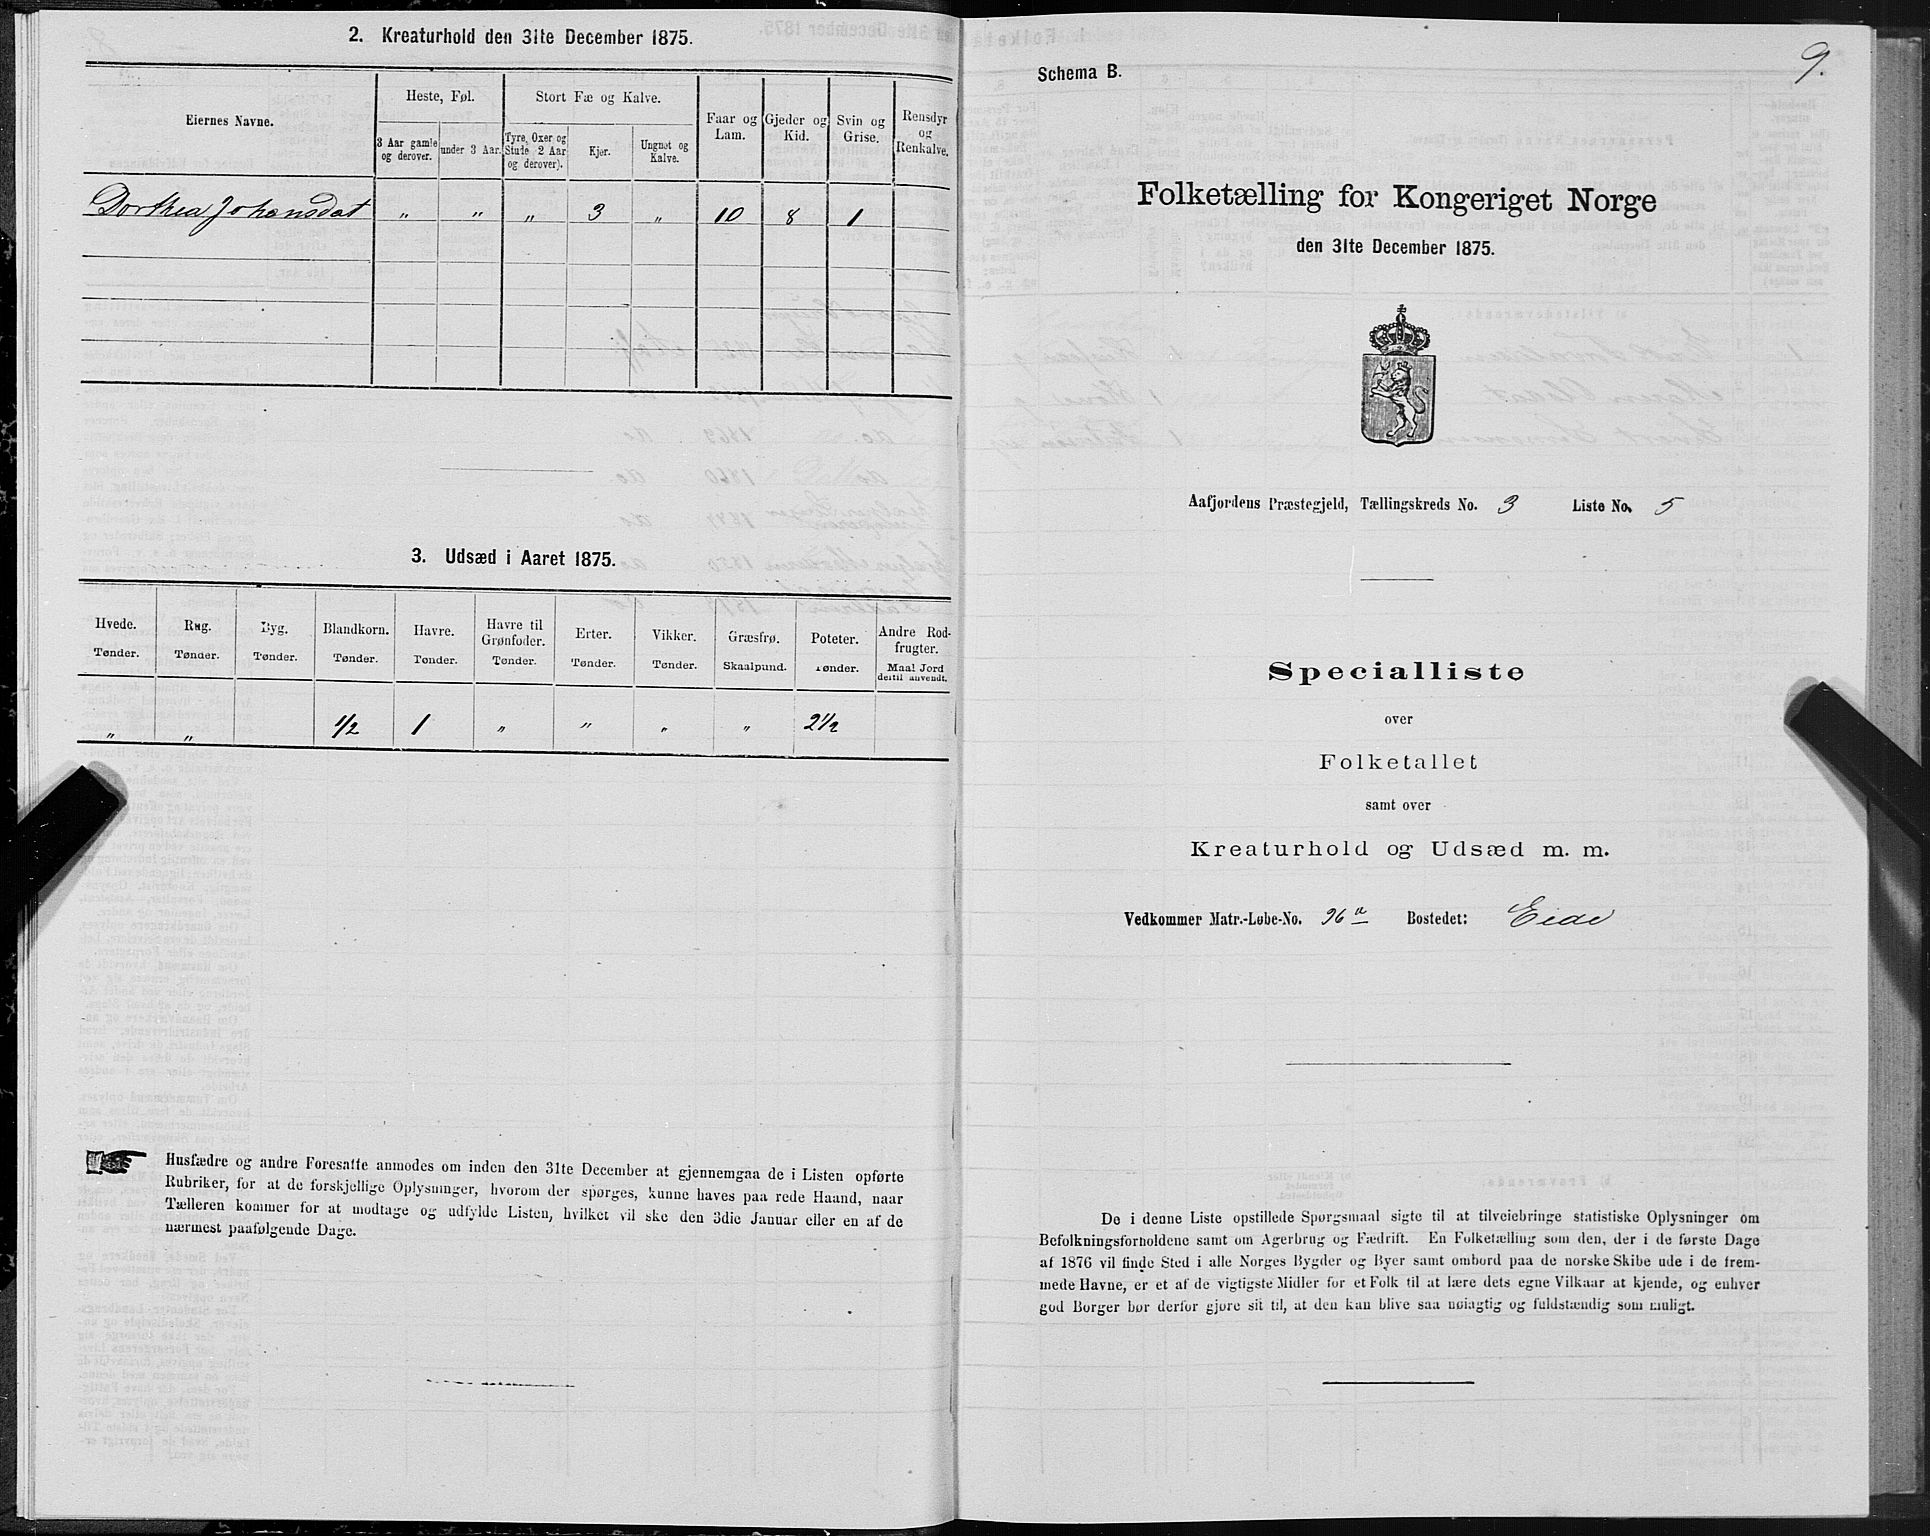 2. Kreaturhold den 31te December 1875.
Eiernes Navne.
Heste, Føl.
Stort Fæ og Kalve.
Faar og Lam.
Gjeder og Kid.
Svin og Grise.
Rensdyr og Renkalve.
3 Aar gamle og derover.
under 3 Aar.
Tyre, Oxer og Stude 2 Aar og derover).
Kjer.
Ungnøt og Kalve.
Dorthea Johansdat " " " 3 " 10 8 1
3. Udsæd i Aaret 1875.
Hvede. Rug. Byg. Blandkorn. Havre. Havre til Grønfoder. Erter. Vikker. Græsfrø. Poteter. Andre Rodfrugter.
Tønder. Tønder. Tønder. Tønder. Tønder. Tønder. Tønder. Tønder. Skaalpund. Tønder. Maal Jord dertil anvendt.
" " 1/2 1 " " " " 2 1/2
Husfædre og andre Foresatte anmodes om inden den 31te December at gjennemgaa de i Listen opførte
Rubriker, for at de forskjellige Oplysninger, hvorom der spørges, kunne haves paa rede Haand, naar
Tælleren kommer for at modtage og udfylde Listen, hvilket vil ske den 3die Januar eller en af de
nærmest paafølgende Dage.
9.
Schema B.
Folketælling for Kongeriget Norge
den 31te December 1875.
Aafjordens Præstegjeld, Tællingskreds No. 3 Liste No. 5
Specialliste
over
Folketallet
samt over
Kreaturhold og Udsæd m. m.
Vedkommer Matr.-Løbe-No. 96a Bostedet: Eide
De i denne Liste opstillede Spørgsmaal sigte til at tilveiebringe statistiske Oplysninger om
Befolkningsforholdene samt om Agerbrug og Fædrift. En Folketælling som den, der i de første Dage
af 1876 vil finde Sted i alle Norges Bygder og Byer samt ombord paa de norske Skibe ude i de frem-
mede Havne, er et af de vigtigste Midler for et Folk til at lære dets egne Vilkaar at kjende, og enhver
god Borger bør derfor gjøre sit til, at den kan blive saa nøiagtig og fuldstændig som muligt.